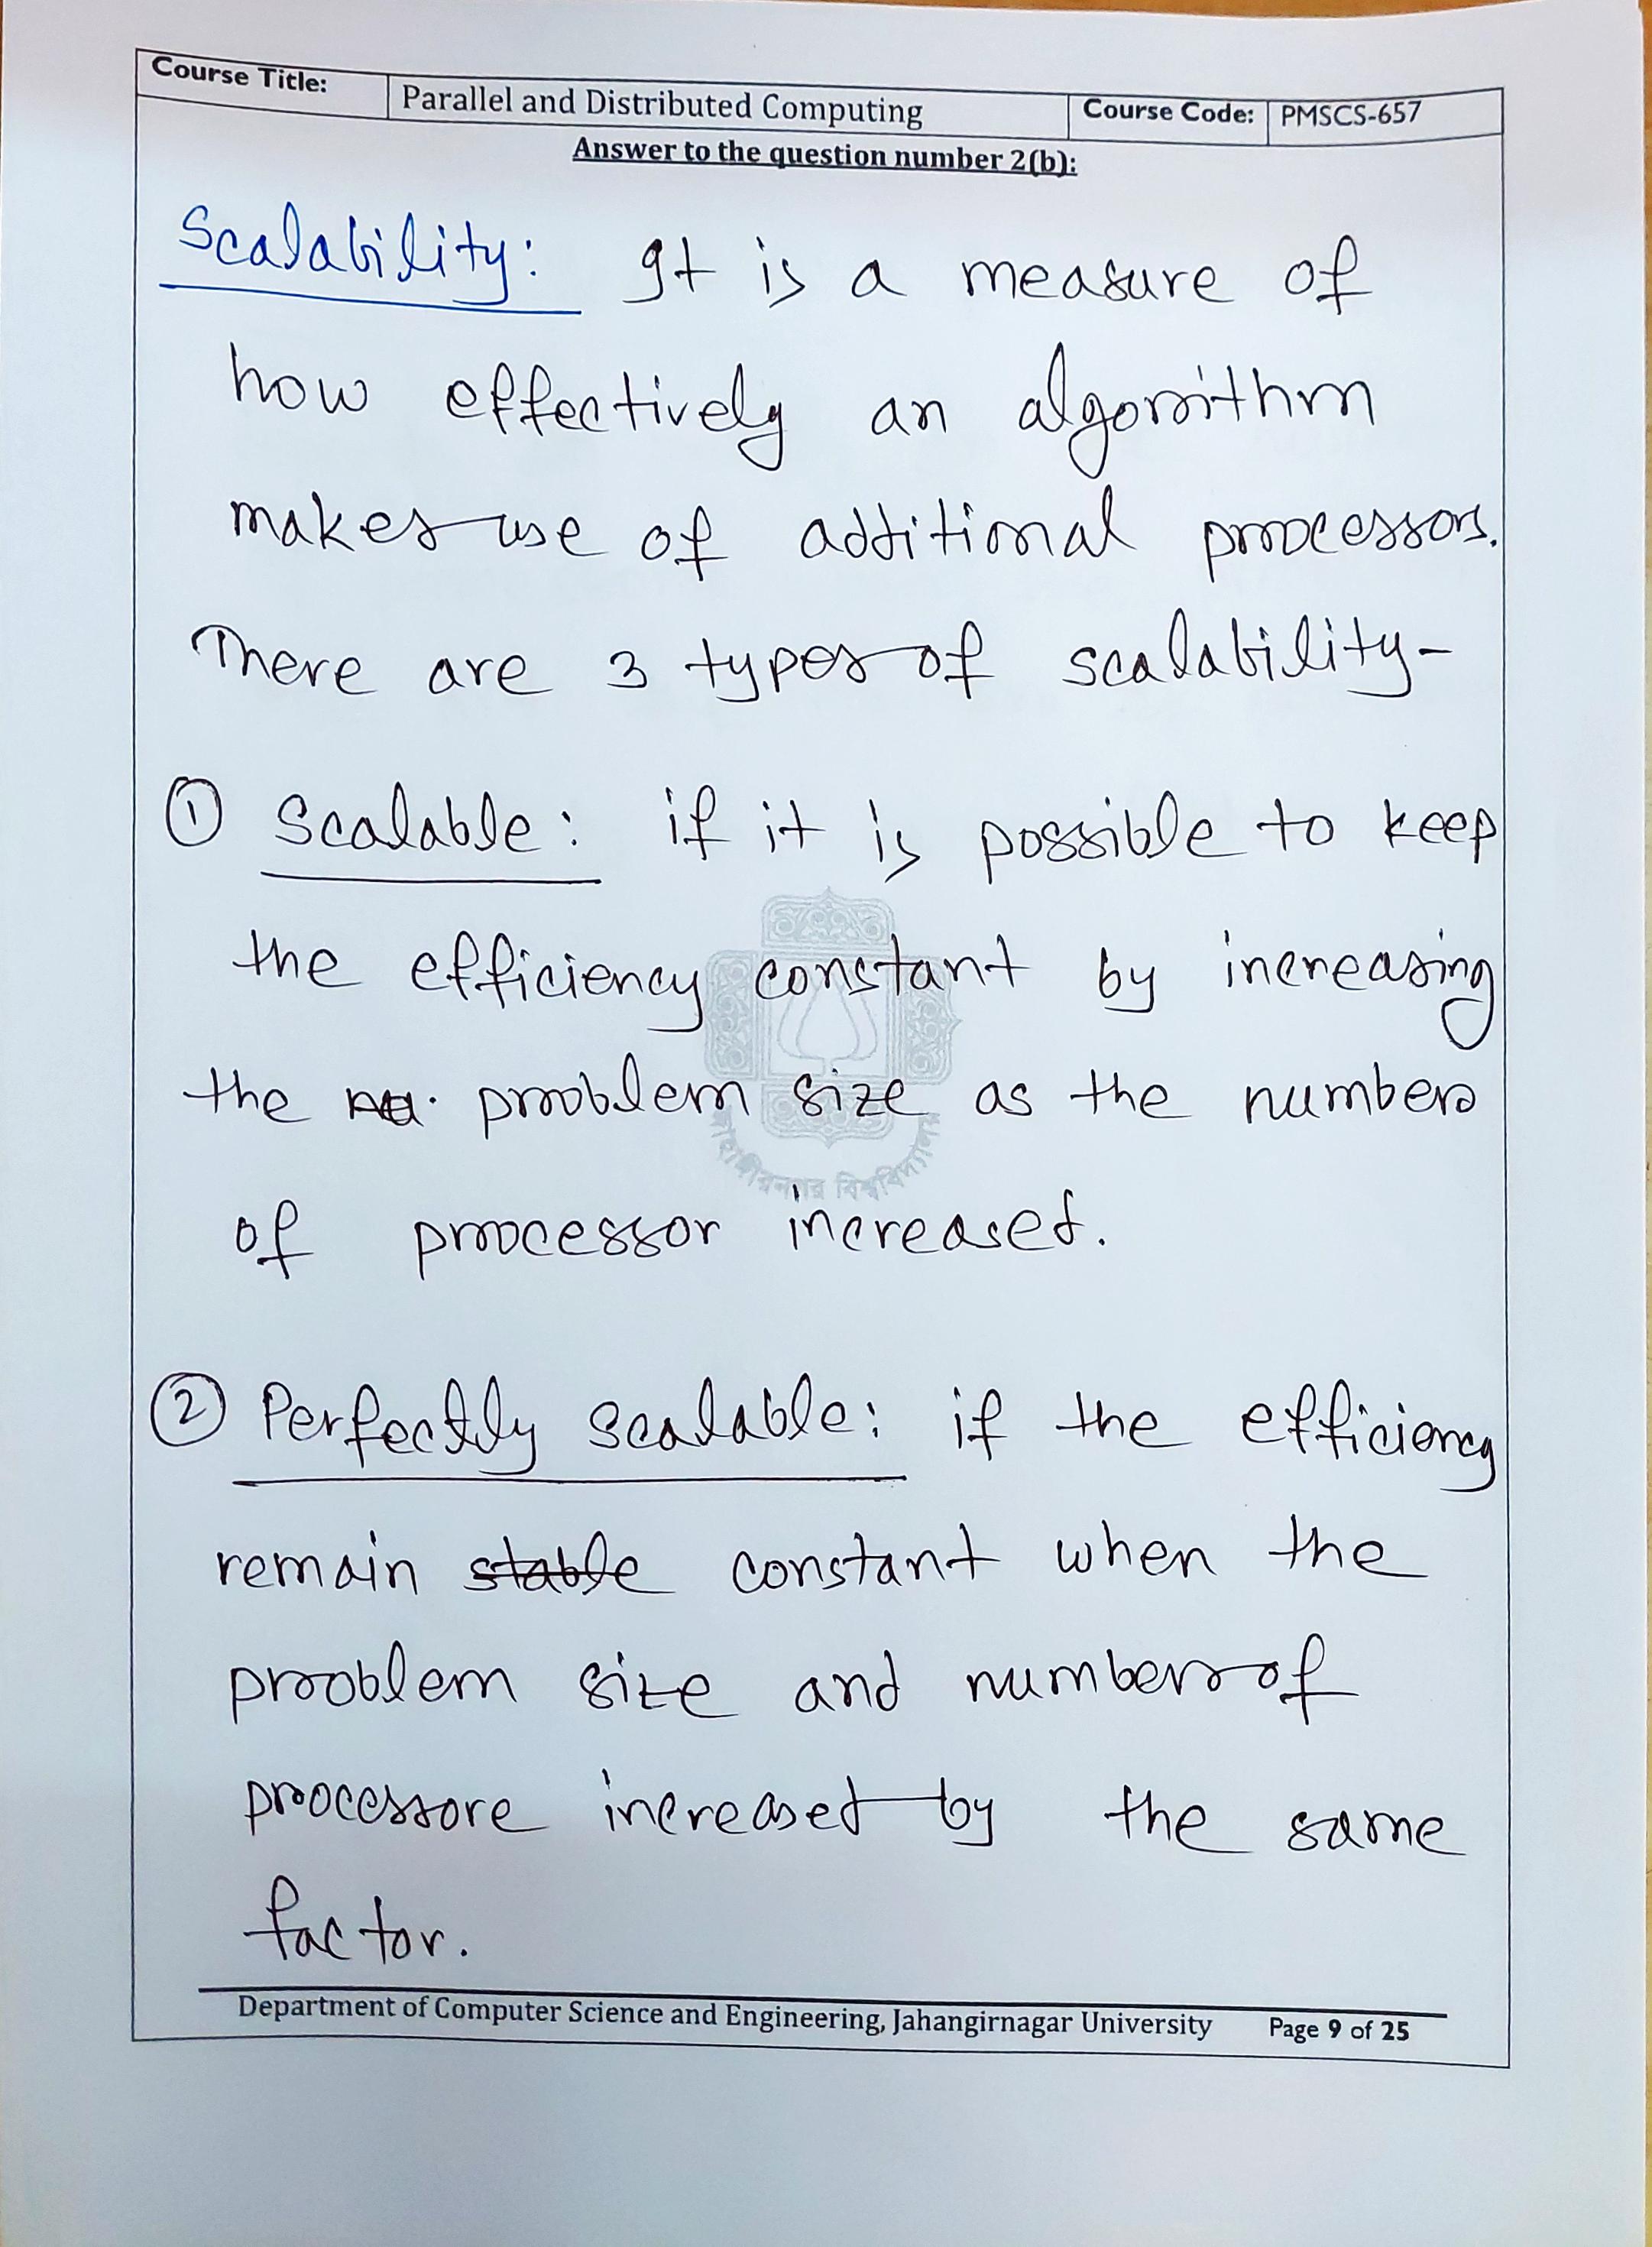 Course Title: Parallel and Distributed Computing Course Code: PMSCS-657
Answer to the question number 2(b):
Scalability: It is a measure of
how effectively an algorithm
makes use of additional processors.
There are 3 types of scalability-
① Scalable: if it is possible to keep
the efficiency constant by increasing
the problem size as the number
of processor increased.
② Perfectly scalable: if the efficiency
remain stable constant when the
problem size and number of
processore increased by the same
factor.
জাহাঙ্গীরনগর বিশ্ববিদ্যালয়
Department of Computer Science and Engineering, Jahangirnagar University Page 9 of 25